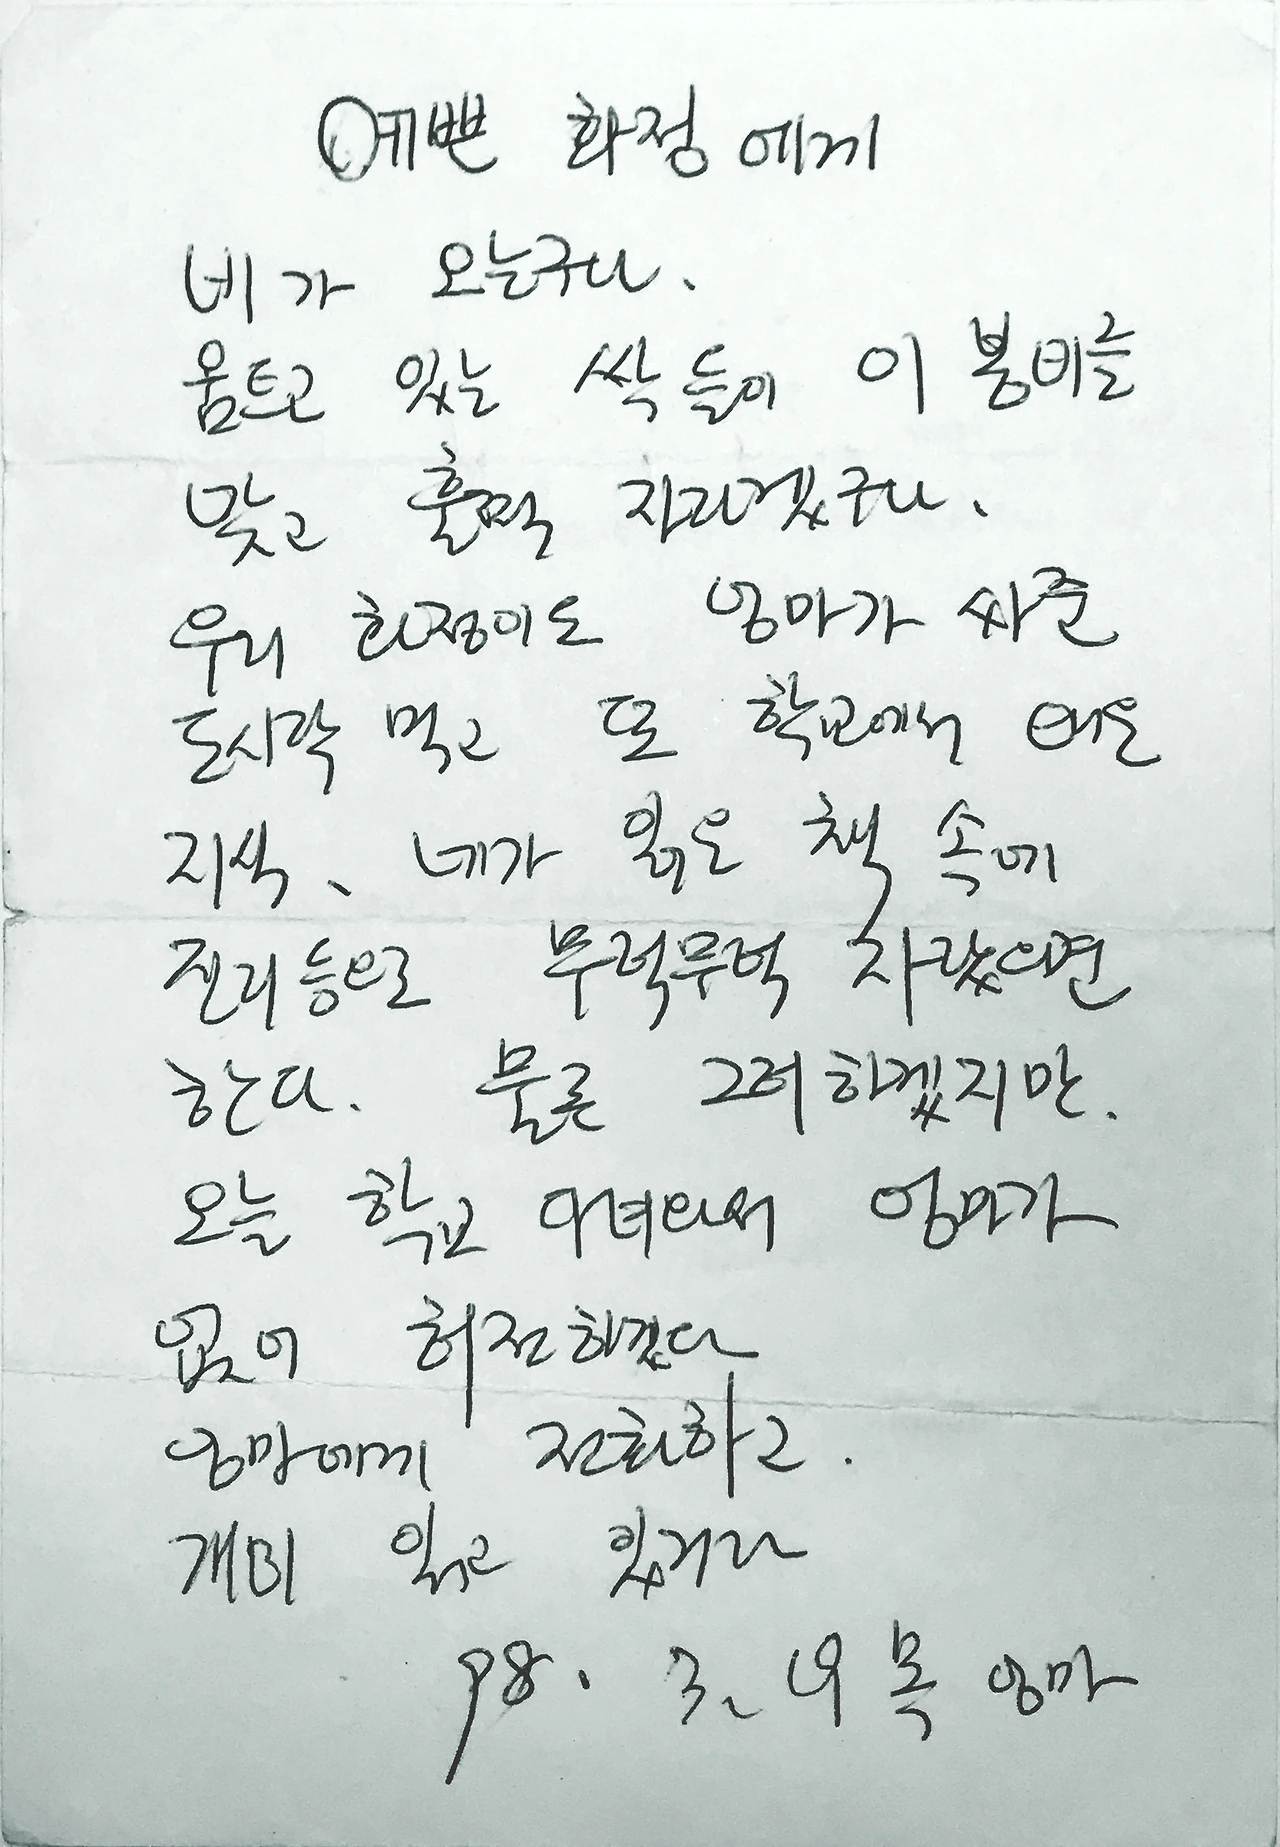 예쁜 화정에게
비가 오는구나.
움트고 있는 싹들이 이 봄비를
맞고 훌쩍 자라겠구나.
우리 화정이도 엄마가 싸준
도시락 먹고 또 학교에서 배운
지식, 네가 읽은 책 속에
진리 등으로 무럭무럭 자랐으면
한다. 물론 그러하겠지만.
오늘 학교 다녀와서 엄마가
없어 허전하겠다
엄마에게 전화하고.
개미 읽고 있거라
98. 3. 목 엄마